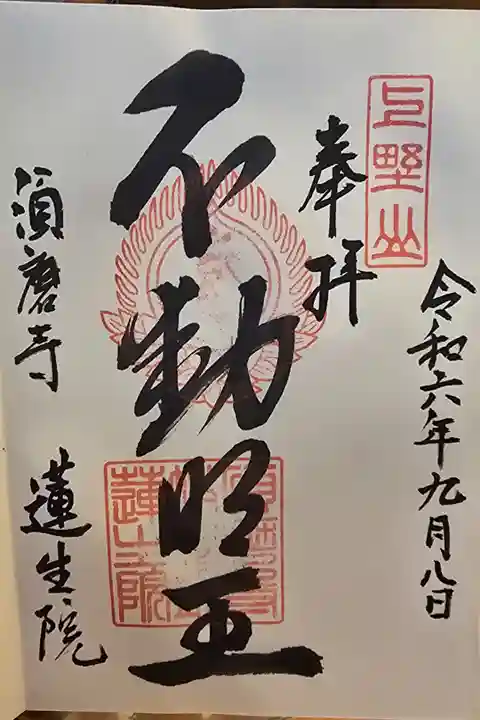 令和六年九月八日
上野山
奉拝
不動明王
須磨寺
蓮生院
須磨寺
蓮生院